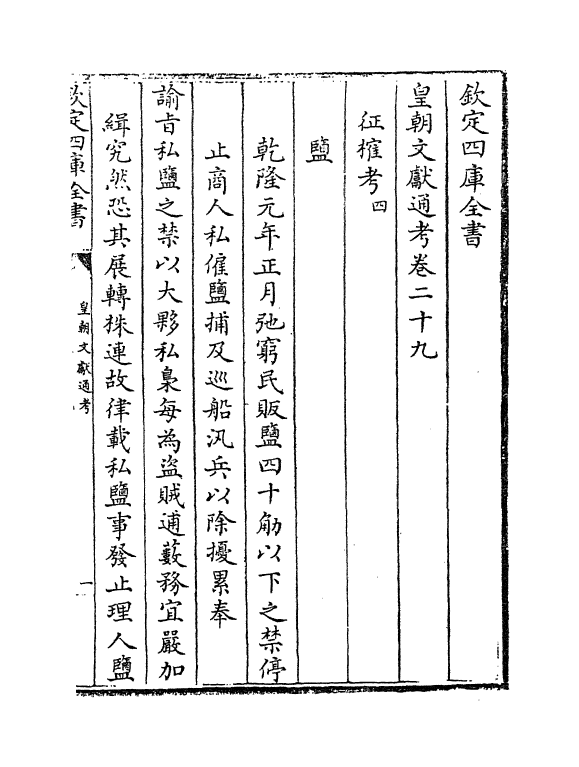 欽定四庫全書
皇朝文獻通考卷二十九
征榷考四
鹽
乾隆元年正月弛窮民販鹽四十觔以下之禁停
止商人私僱鹽捕及巡船汛兵以除擾累奉
諭旨私鹽之禁以大夥私梟每為盜賊逋藪務宜嚴加
緝究然恐其展轉株連故律載私鹽事發止理人鹽
欽定四庫全書
皇朝文獻通考
一